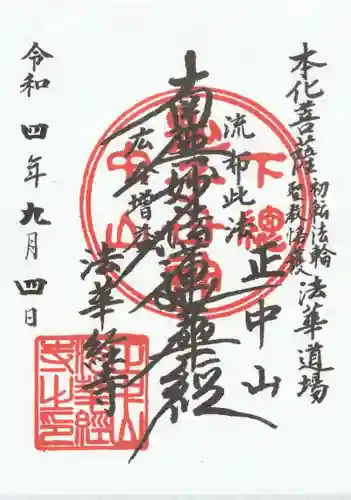 本化菩薩初転法輪
聖教悋護法華道場
正中山
流布此法
南無妙法蓮華経
広令増益
法華経寺
令和四年九月四日